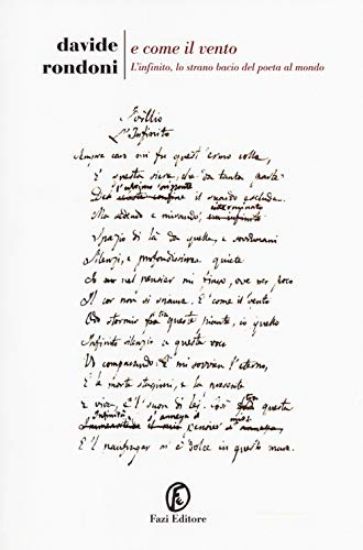 davide rondoni
e come il vento
L'infinito, lo strano bacio del poeta al mondo
Idillio
L'Infinito
Sempre caro mi fu quest'ermo colle,
E questa siepe, che da tanta parte
l'ultimo orizzonte
De il guardo esclude.
interminato
Ma sedendo e mirando,
Spazio di là da quella, e sovrumani
Silenzi, e profondissima quiete
Io nel pensier mi fingo, ove per poco
Il cor non si spaura. E come il vento
Odo stormir tra queste piante, io quello
Infinito silenzio a questa voce
Vo comparando: E mi sovvien l'eterno,
E le morte stagioni, e la presente
E viva, e 'l suon di lei. Così questa
Infinità s'annega il mio
pensier
E 'l naufragar m'è dolce in questo mare.
Fe
Fazi Editore